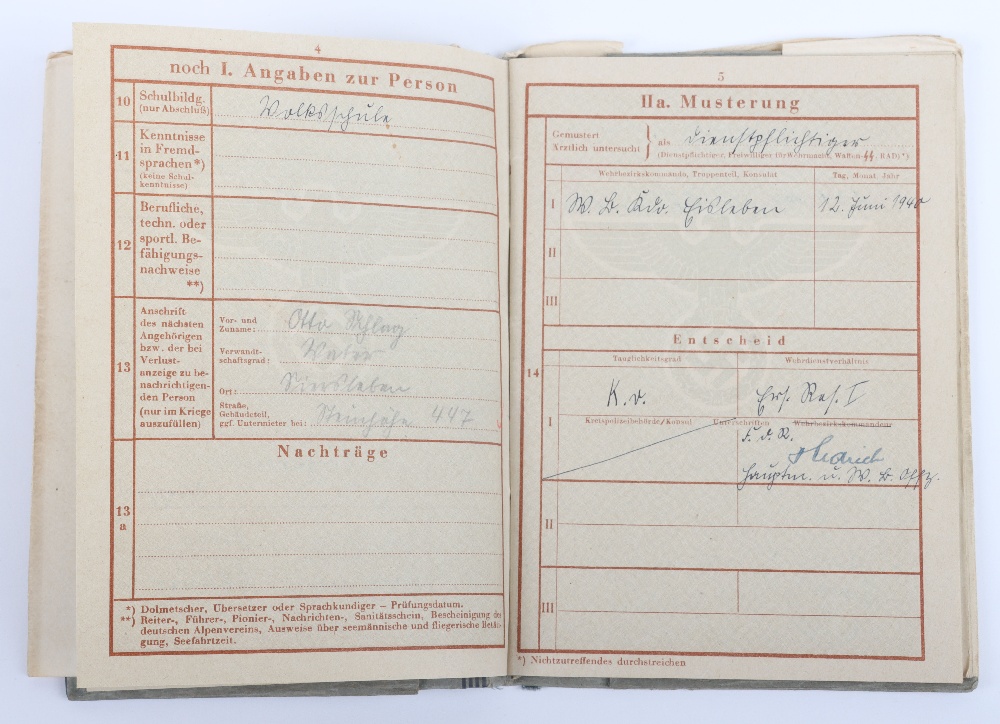 4
noch I. Angaben zur Person
10
Schulbildg.
(nur Abschluß)
Volksschule
11
Kenntnisse
in Fremd-
sprachen*)
(keine Schul-
kenntnisse)
12
Berufliche,
techn. oder
sportl. Be-
fähigungs-
nachweise
**)
13
Anschrift
des nächsten
Angehörigen
bzw. der bei
Verlust-
anzeige zu be-
nachrichtigen-
den Person
(nur im Kriege
auszufüllen)
Vor- und
Zuname:
Otto Schlag
Verwandt-
schaftsgrad:
Vater
Ort:
Siersleben
Straße,
Gebäudeteil,
ggf. Untermieter bei:
Steinhöhe 447
13
a
Nachträge
*) Dolmetscher, Übersetzer oder Sprachkundiger – Prüfungsdatum.
**) Reiter-, Führer-, Pionier-, Nachrichten-, Sanitätsschein, Bescheinigung des
deutschen Alpenvereins, Ausweise über seemännische und fliegerische Betäti-
gung, Seefahrtzeit.
5
IIa. Musterung
Gemustert
Ärztlich untersucht
als
Dienstpflichtiger
(Dienstpflichtiger, Freiwilliger für Wehrmacht, Waffen-SS, RAD)*)
Wehrbezirkskommando, Truppenteil, Konsulat
Tag, Monat, Jahr
I
W. B. Kdo. Eisleben
12. Juni 1940
II
III
Entscheid
14
Tauglichkeitsgrad
Wehrdienstverhältnis
I
K.v.
Ers. Res. I
Kreispolizeibehörde/Konsul
Unterschriften
Wehrbezirkskommandeur
F. d. R.
Hauptm. u. W. B. Offz.
II
III
*) Nichtzutreffendes durchstreichen